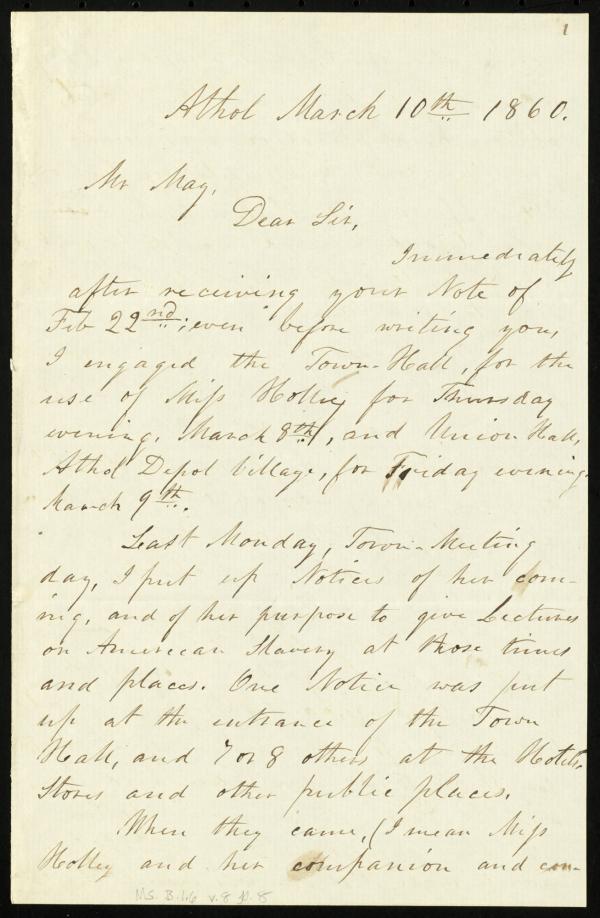 1
Athol March 10th 1860.
Mr May,
Dear Sir,
Immediately
after receiving your Note of
Feb 22nd; even before writing you,
I engaged the Town-Hall, for the
use of Miss Holley for Thursday
evening, March 8th, and Union Hall,
Athol Depot Village, for Friday evening,
March 9th.
Last Monday, Town-Meeting
day, I put up Notices of her com-
ing, and of her purpose to give Lectures
on American Slavery at those times
and places. One Notice was put
up at the entrance of the Town
Hall, and 7 or 8 others at the Hotels,
Stores and other public places.
When they came, (I mean Miss
Holley and her companion and con-
MS. B.1.6 v.8 p.8